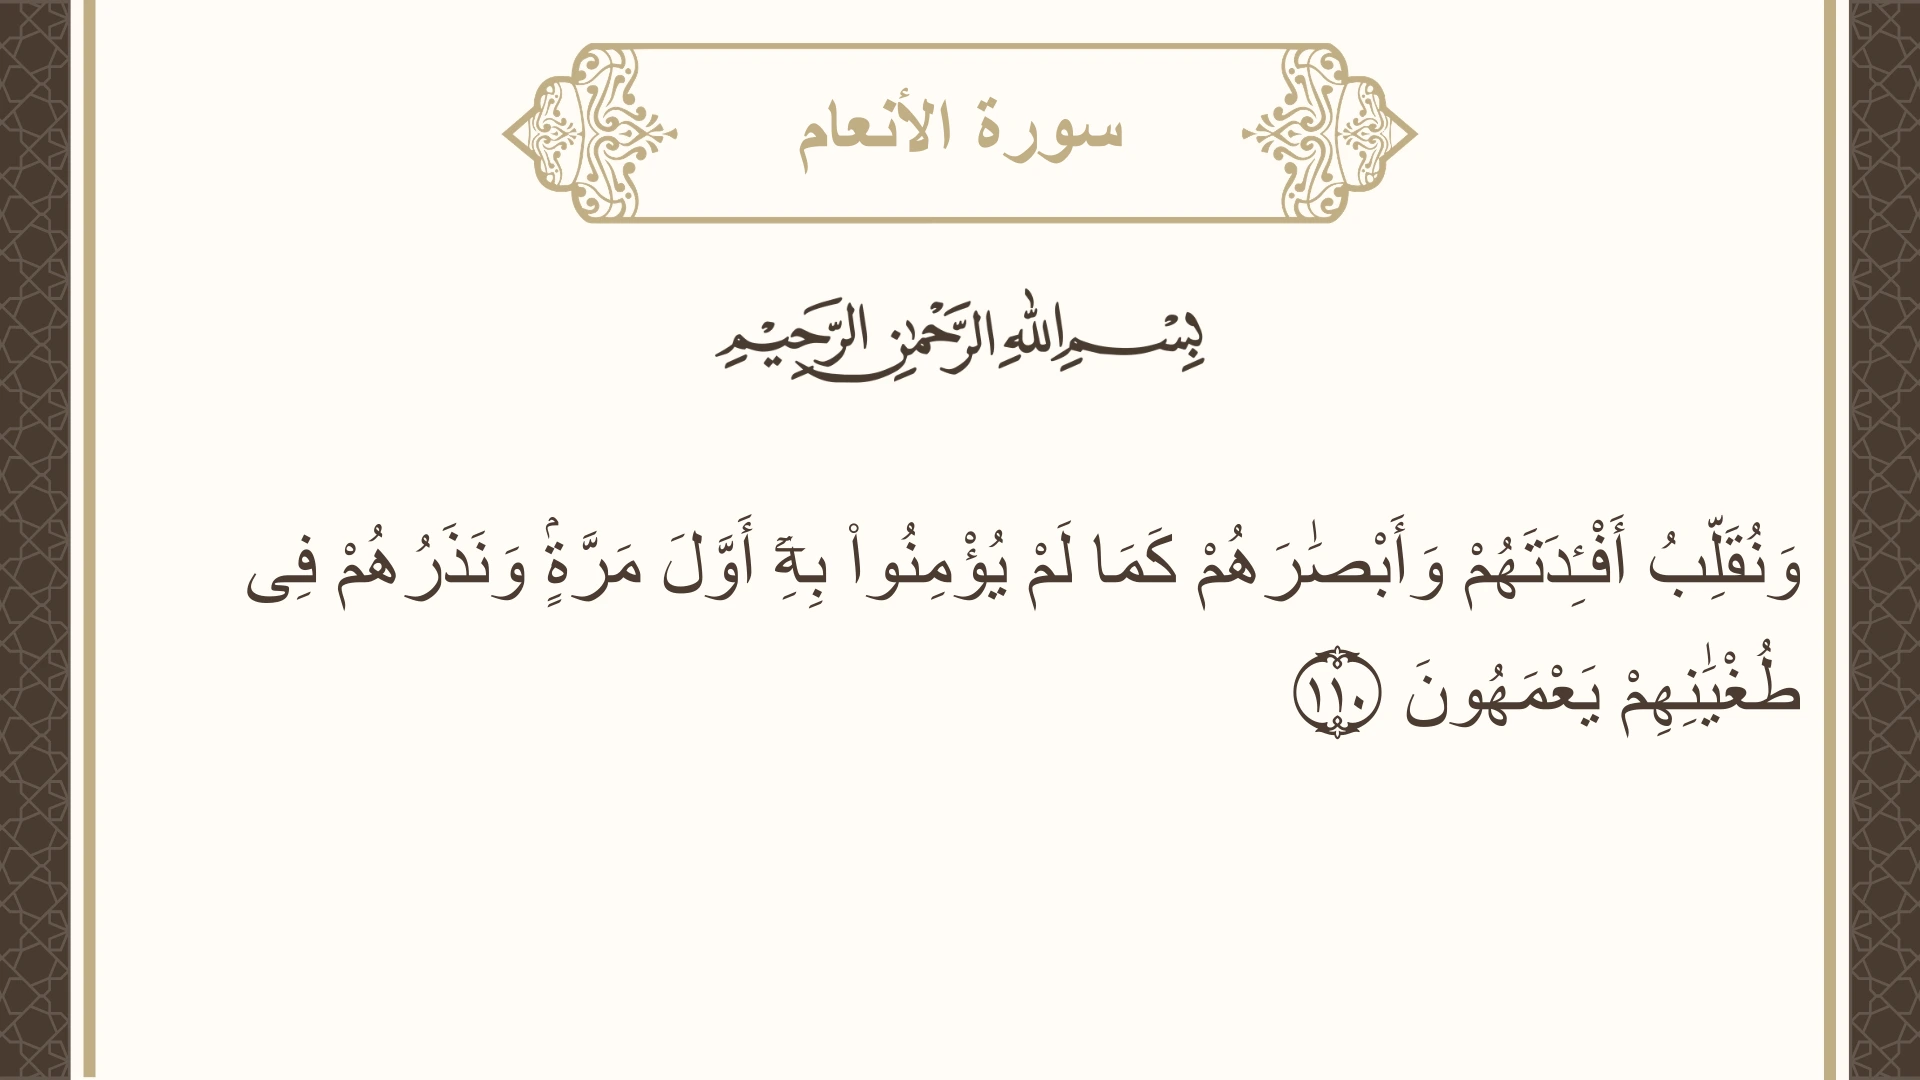 سورة الأنعام
بِسْمِ اللهِ الرَّحْمٰنِ الرَّحِيْمِ
وَنُقَلِّبُ أَفْـِٔدَتَهُمْ وَأَبْصَـٰرَهُمْ كَمَا لَمْ يُؤْمِنُوا۟ بِهِۦٓ أَوَّلَ مَرَّةٍۢ وَنَذَرُهُمْ فِى
طُغْيَـٰنِهِمْ يَعْمَهُونَ ١١٠